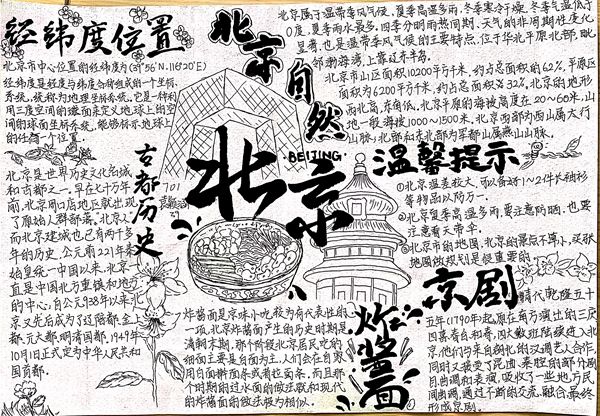 经纬度位置
北京市中心位置的经纬度为(39°56′N,116°20′E)
经纬度是经度与纬度合称组成的一个坐标
系统,统称为地理坐标系统,它是一种利
用三度空间的球面来定义地球上的空
间的球面坐标系统,能够标示地球上
的任何一个位置
北京自然
北京属于温带季风气候,夏季高温多雨,冬季寒冷干燥,冬季气温低于
0度,夏季雨水最多,四季分明雨热同期,天气的非周期性变化
显著,也是温带季风气候的主要特点,位于华北平原北部,毗
邻渤海湾,上靠辽东半岛。
北京市山区面积10200平方千米,约占总面积的62%,平原区
面积为6200平方千米,约占总面积的32%,北京的地形
西北高,东南低,北京平原的海拔高度在20~60米,山
地一般海拔1000~1500米,北京西部为西山属太行
山脉,北部和东北部为军都山属燕山山脉。
古都历史
北京是世界历史文化名城
和古都之一,早在七十万年
前,北京周口店地区就出现
了原始人群部落,北京人
而北京建城也已有两千多
年的历史,公元前221年秦
始皇统一中国以来,北京一
直是中国北方重镇和地方
的中心,自公元938年以来北
京又先后成为了辽陪都,金上
都,元大都,明清国都,1949年
10月1日正式定为中华人民共和
国首都。
701
北京
·BEIJING·
温馨提示
①北京温差较大,可以备好1~2件外衫
等物品以防万一。
②北京夏季高温多雨,要注意防晒,也要
注意着天带伞。
③北京市的地图,北京的景点不算小,买张
地图做规划是很重要的。
炸酱面
炸酱面是京味小吃较为有代表性的
一项,北京炸酱面产生的历史时期是
清朝末期,那个阶段北京居民吃的
细面主要是自面为主,人们会在自家
用自面擀面条或者拉面条,而且那
个时期的过水面的做法就和现代
的炸酱面的做法极为相似。
京剧
清代乾隆五十
五年(1790年)起,原在南方演出的三庆
四喜春台和春,四大徽班陆续进入北
京,他们与来自湖北的汉调艺人合作,
同时又接受了昆曲、秦腔的部分剧
目曲调和表演,吸收了一些地方民
间曲调,通过不断的交流、融合,最终
形成京剧。